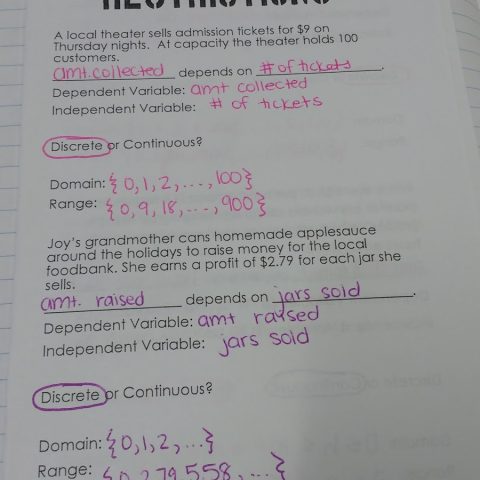 A local theater sells admission tickets for $9 on
Thursday nights. At capacity the theater holds 100
customers.
amt. collected depends on # of tickets.
Dependent Variable: amt collected
Independent Variable: # of tickets
Discrete or Continuous?
Domain: {0,1,2,...,100}
Range: {0,9,18,...,900}
Joy's grandmother cans homemade applesauce
around the holidays to raise money for the local
foodbank. She earns a profit of $2.79 for each jar she
sells.
amt. raised depends on jars sold.
Dependent Variable: amt raised
Independent Variable: jars sold
Discrete or Continuous?
Domain: {0,1,2,...}
Range: {0,2.79,5.58,...}